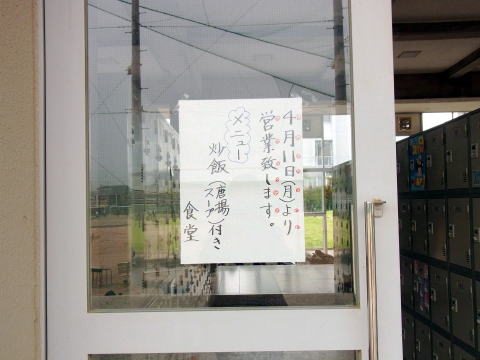 4月11日(月)より
営業致します。
メニュー
炒飯(唐揚スープ)付き
食堂